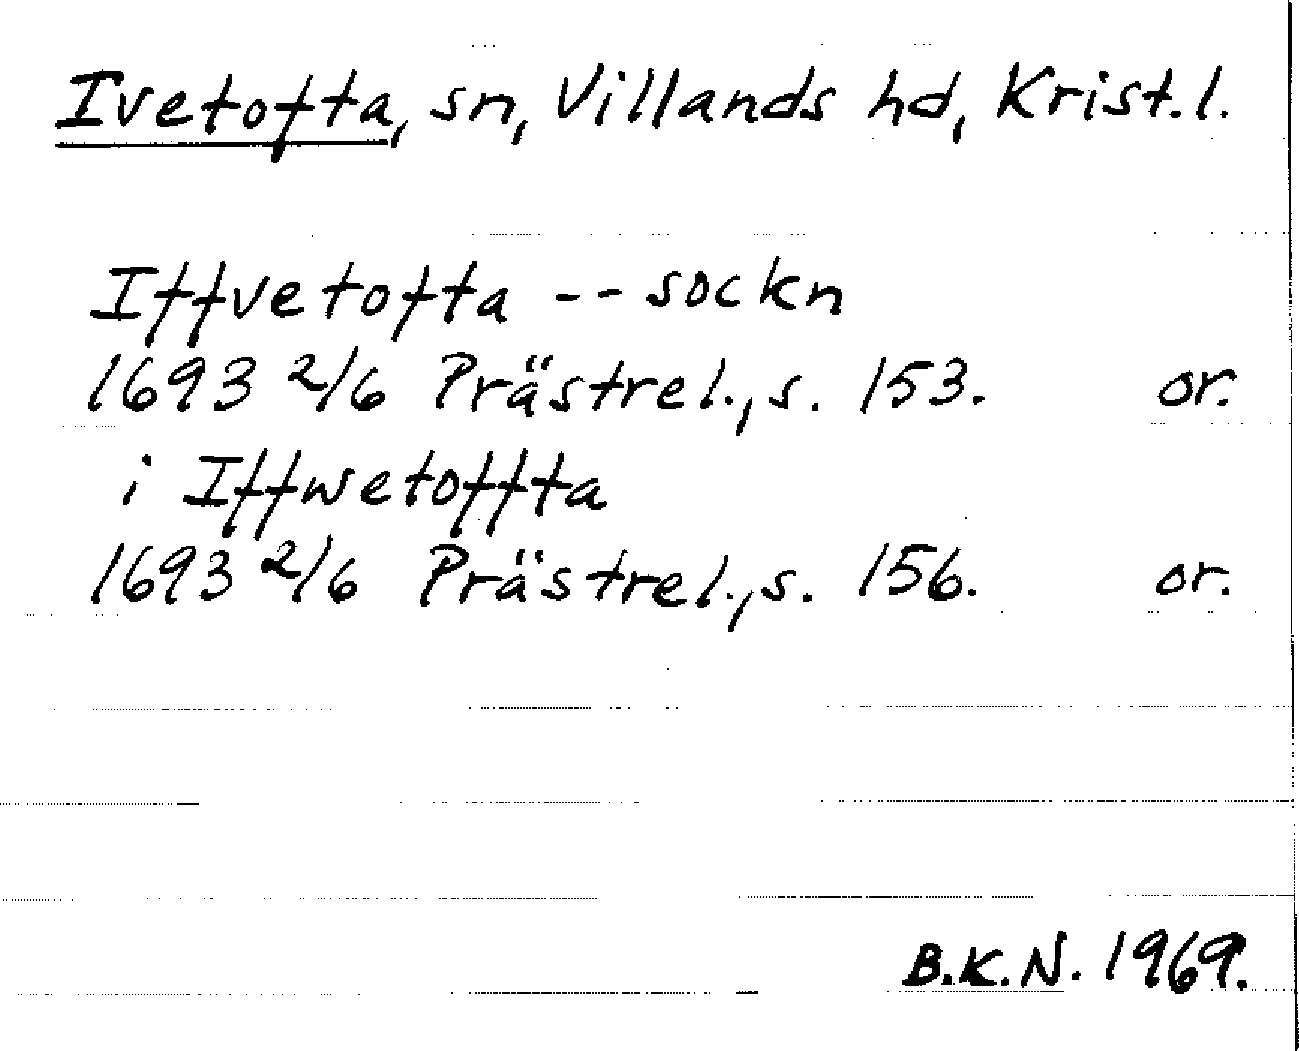 Ivetofta, sn, Villands hd, Krist.l.
Iffvetofta -- sockn
1693 2/6 Prästrel., s. 153. or.
i Iffwetoffta
1693 2/6 Prästrel., s. 156. or.
B.K.N. 1969.